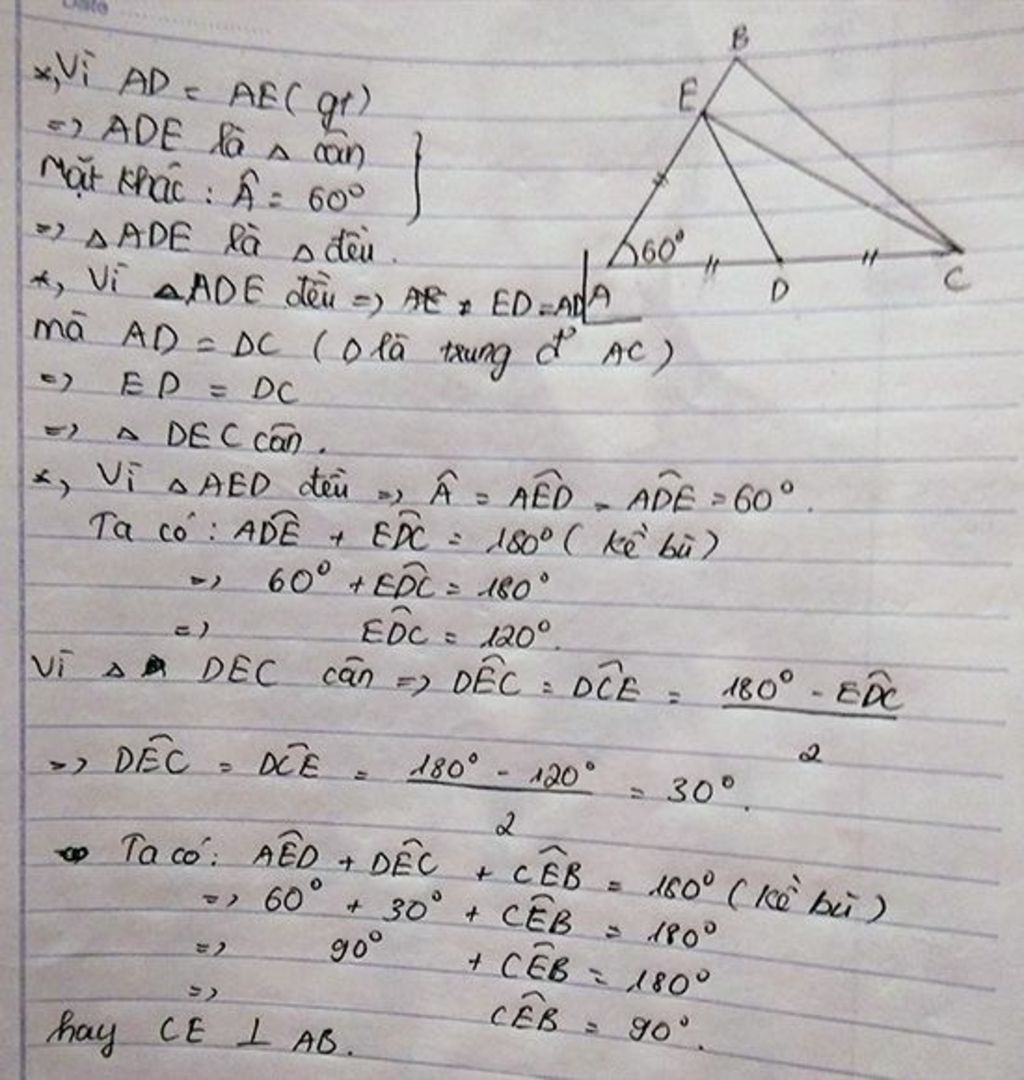 Date
*, Vì AD = AE (gt)
=> ADE là △ cân
Mặt khác : Â = 60°
=> △ ADE là △ đều .
*, Vì △ADE đều => AE = ED = AD
mà AD = DC ( D là trung đ' AC )
=> ED = DC
=> △ DEC cân .
*, Vì △AED đều => Â = AÊD = AD̂E = 60° .
Ta có : AD̂E + ED̂C = 180° ( kề bù )
=> 60° + ED̂C = 180°
=> ED̂C = 120° .
Vì △ DEC cân => DÊC = DĈE = (180° - ED̂C) / 2
=> DÊC = DĈE = (180° - 120°) / 2 = 30° .
Ta có : AÊD + DÊC + CÊB = 180° ( kề bù )
=> 60° + 30° + CÊB = 180°
=> 90° + CÊB = 180°
=> CÊB = 90° .
hay CE ⊥ AB .
B
E
60°
A
D
C